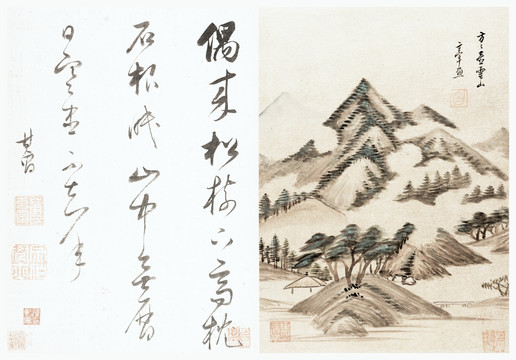 方〻壺雲山
玄宰畫
偶來松樹下高枕
石根眠山中無曆
日寒盡不知年
其昌